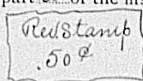 Red Stamp
.50¢